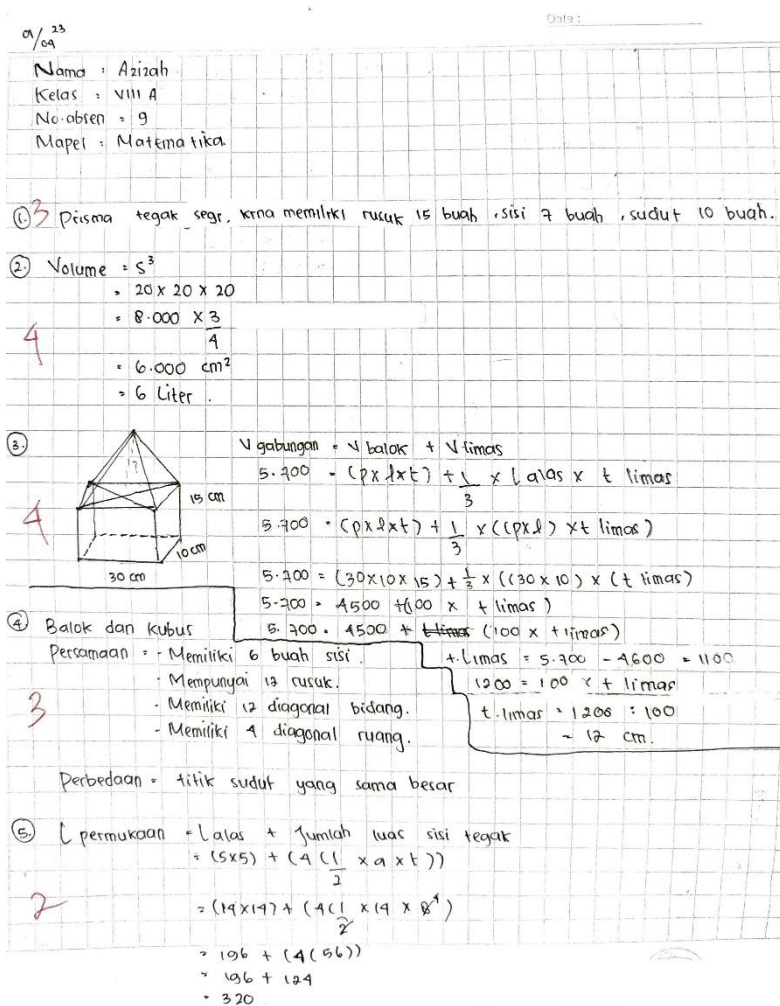 Date :
01/09 23
Nama : Azizah
Kelas : VIII A
No.absen : 9
Mapel : Matematika
① 3 Prisma tegak segi, krna memiliki rusuk 15 buah, sisi 7 buah, sudut 10 buah.
② Volume = S³
= 20 x 20 x 20
= 8.000 x 3/4
4
= 6.000 cm²
= 6 Liter.
③ V gabungan = V balok + V limas
5.700 = (pxlxt) + 1/3 x Lalas x t limas
15 cm
4
5.700 = (pxlxt) + 1/3 x ((pxl) x t limas)
10 cm
30 cm
5.700 = (30x10x15) + 1/3 x ((30x10) x (t limas)
5.700 = 4500 + (100 x t limas)
5.700 = 4500 + t limas (100 x t limas)
t.Limas = 5.700 - 4600 = 1100
1200 = 100 x t limas
t.limas = 1200 : 100
= 12 cm.
④ Balok dan Kubus
Persamaan = - Memiliki 6 buah sisi.
- Mempunyai 12 rusuk.
- Memiliki 12 diagonal bidang.
3
- Memiliki 4 diagonal ruang.
Perbedaan = titik sudut yang sama besar
⑤ L permukaan = Lalas + Jumlah luas sisi tegak
= (5x5) + (4(1/2 x a x t))
2
= (14x14) + (4(1/2 x 14 x 8⁴)
= 196 + (4(56))
= 196 + 124
= 320